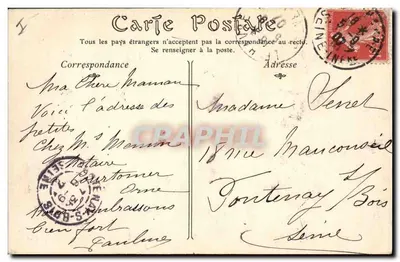 Carte Postale
Tous les pays étrangers n'acceptent pas la correspondance au recto.
Se renseigner à la poste.
Correspondance
Adresse
Ma Chère Maman
Voici l'adresse des
petites
Chez Mr
notaire
Courtomer
Orne
embrassons
bien fort
Pauline
Madame
18 rue Mauconseil
Fontenay s/ Bois
Seine
CPAPHIL